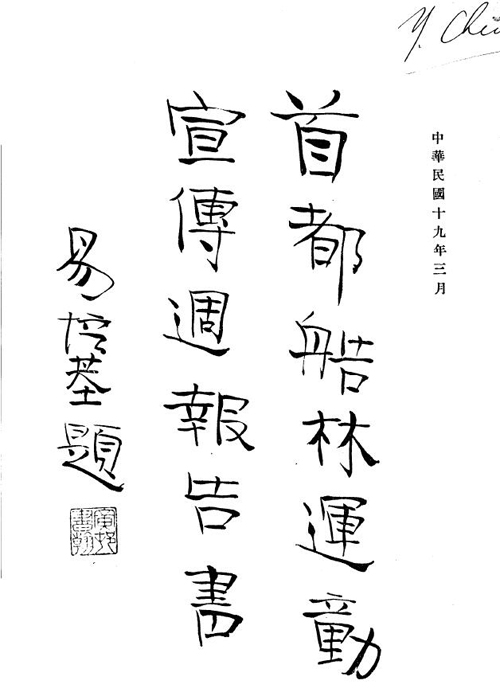 中華民國十九年三月
首都艁林運動
宣傳週報告書
易培基題